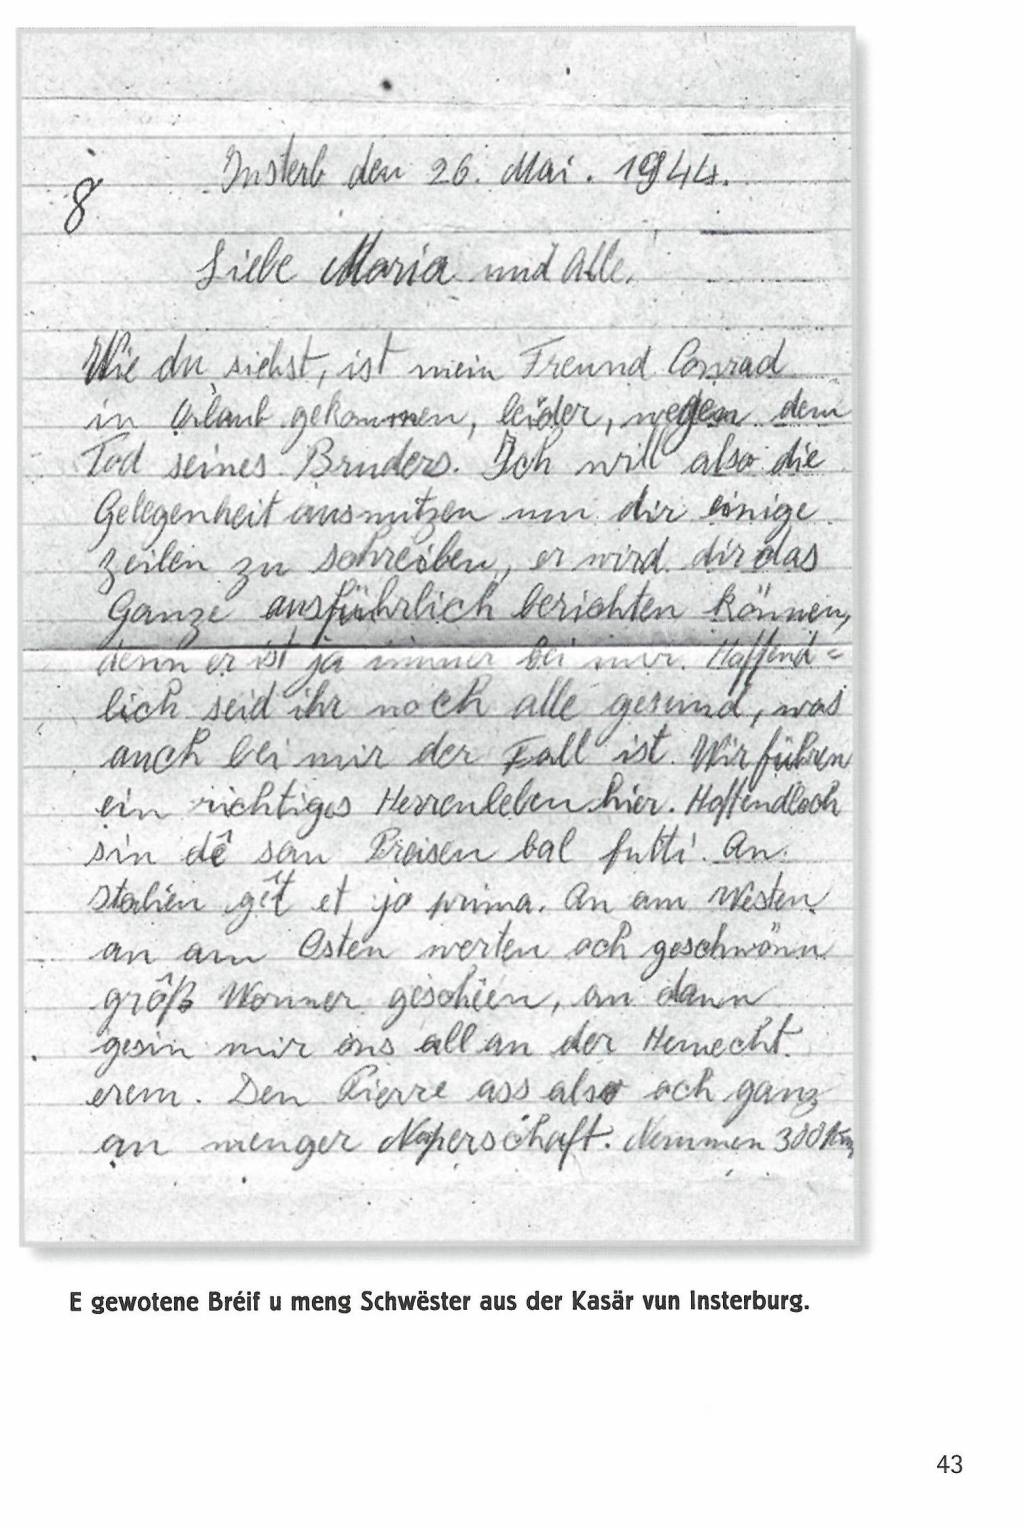 8
Insterb den 26. Mai. 1944.
Liebe Maria und Alle!
Wie du siehst, ist mein Freund Conrad
in Urlaub gekommen, leider, wegen dem
Tod seines Bruders. Ich will also die
Gelegenheit ausnutzen um dir einige
Zeilen zu schreiben, er wird dir das
Ganze ausführlich berichten können,
denn er ist ja immer bei mir. Hoffend=
lich seid ihr noch alle gesund, was
auch bei mir der Fall ist. Wir führen
ein richtiges Herrenleben hier. Hoffendlech
sin dê sau Preisen bal futti. An
Italien gêt et jo prima. An am Westen
an am Osten werten och geschwönn
grôß Wonner geschien, an dann
gesin mir ons all an der Hemecht
erem. Den Pierre ass also och ganz
an menger Noperschaft. Nemmen 300 Km
E gewotene Bréif u meng Schwëster aus der Kasär vun Insterburg.
43